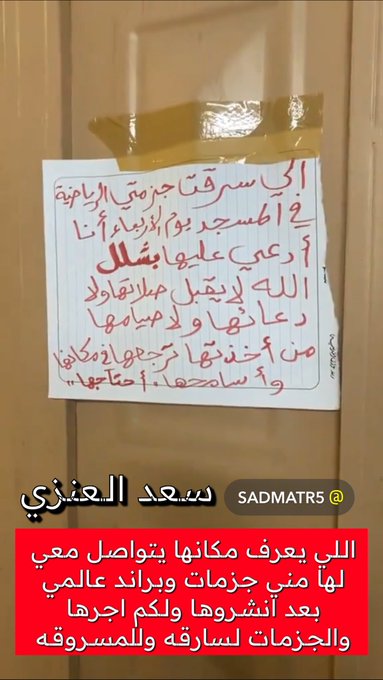 إلي سرقت جزمتي الرياضية
في المسجد يوم الأربعاء أنا
أدعي عليها بشلل
الله لا يقبل صلاتها ولا
دعائها ولا صيامها
من أخذتها ترجعها في مكانها
وأسامحها، أحتاجها..
سعد العنزي
SADMATR5 @
اللي يعرف مكانها يتواصل معي
لها مني جزمات وبراند عالمي
بعد انشروها ولكم اجرها
والجزمات لسارقه وللمسروقه